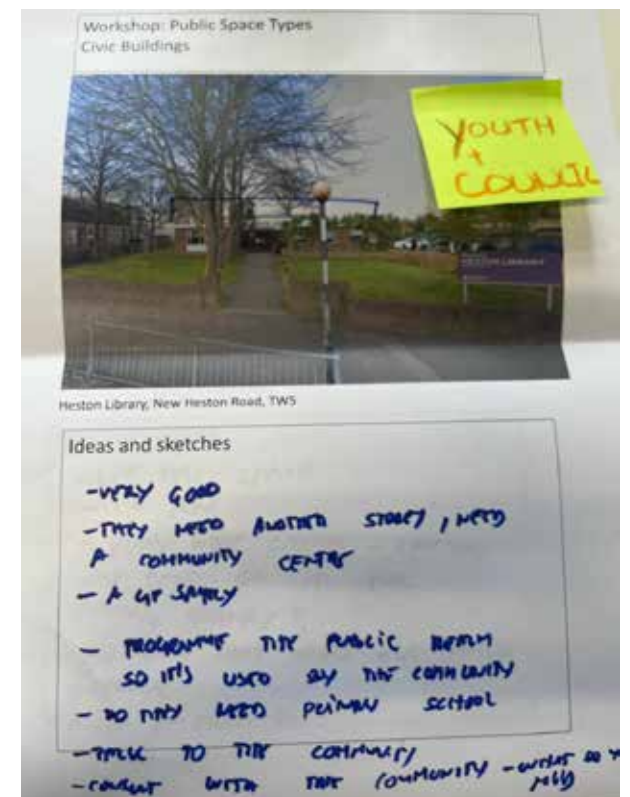 Workshop: Public Space Types
Civic Buildings
YOUTH
+
COUNCIL
HESTON LIBRARY
Heston Library, New Heston Road, TW5
Ideas and sketches
-VERY GOOD
-THEY NEED ANOTHER STOREY, NEED
A COMMUNITY CENTRE
- A GP
- PROGRAMME THE PUBLIC REALM
SO IT'S USED BY THE COMMUNITY
- DO THEY NEED PRIMARY SCHOOL
-TALK TO THE COMMUNITY
-CONSULT WITH THE COMMUNITY - WHAT DO
NEED